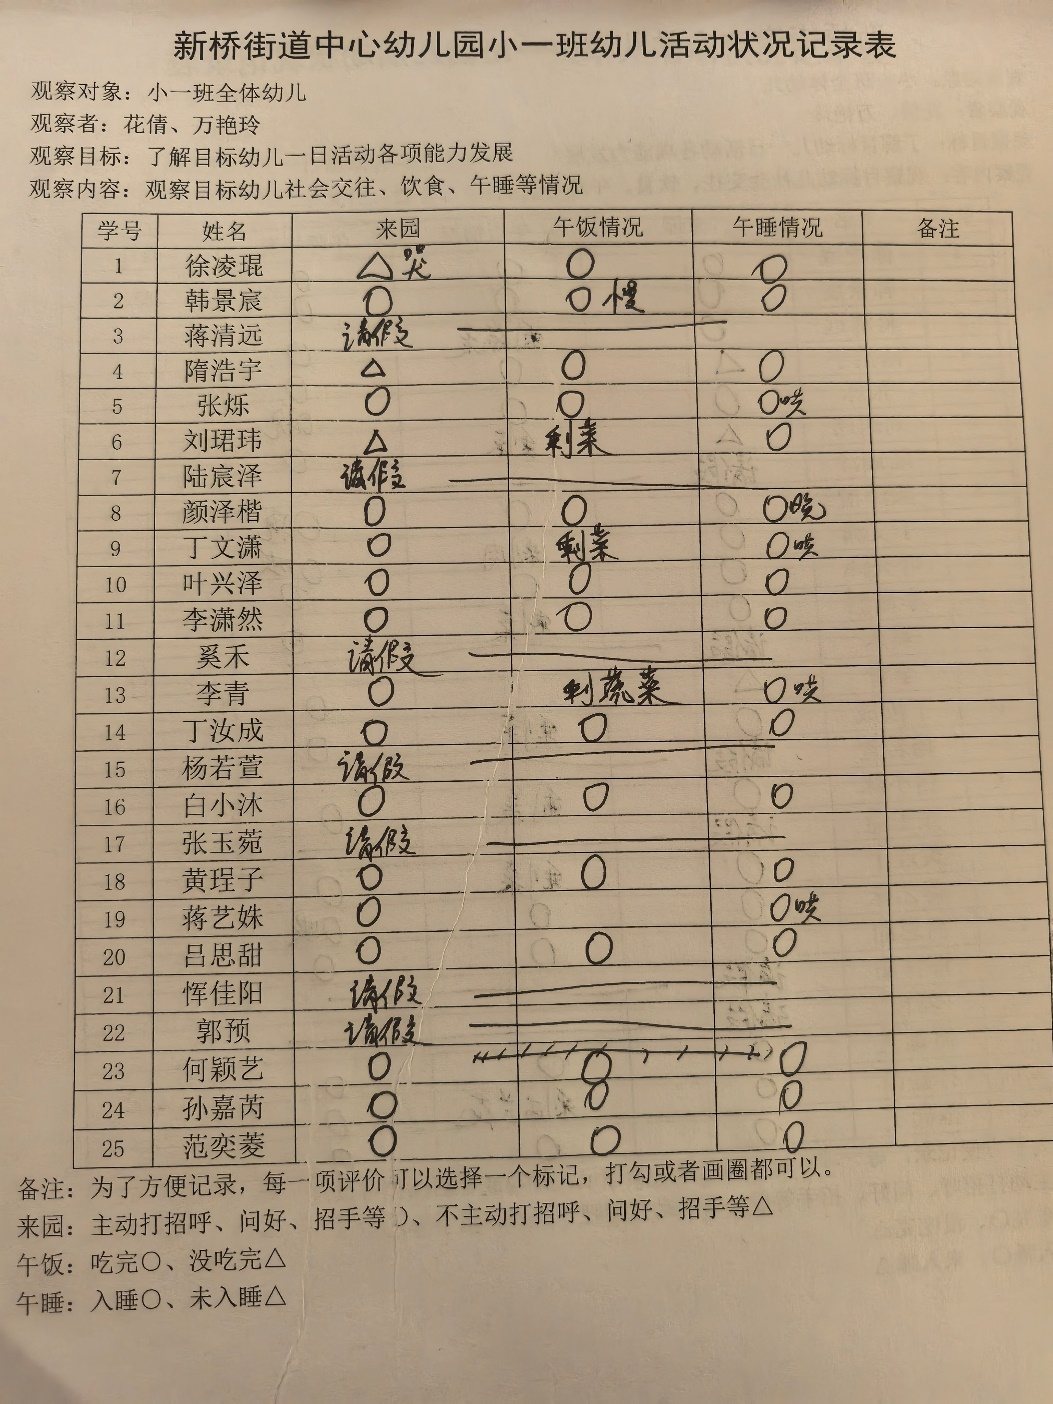 新桥街道中心幼儿园小一班幼儿活动状况记录表
观察对象：小一班全体幼儿
观察者：花倩、万艳玲
观察目标：了解目标幼儿一日活动各项能力发展
观察内容：观察目标幼儿社会交往、饮食、午睡等情况
学号 姓名 来园 午饭情况 午睡情况 备注
1 徐凌琨 △哭 〇 〇
2 韩景宸 〇 〇慢 〇
3 蒋清远 请假
4 隋浩宇 △ 〇 〇
5 张烁 〇 〇 〇哄
6 刘珺玮 △ 剩菜 〇
7 陆宸泽 请假
8 颜泽楷 〇 〇 〇晚
9 丁文潇 〇 剩菜 〇哄
10 叶兴泽 〇 〇 〇
11 李潇然 〇 〇 〇
12 奚禾 请假
13 李青 〇 剩蔬菜 〇哄
14 丁汝成 〇 〇 〇
15 杨若萱 请假
16 白小沐 〇 〇 〇
17 张玉菀 请假
18 黄珵子 〇 〇 〇
19 蒋艺姝 〇 〇哄
20 吕思甜 〇 〇 〇
21 恽佳阳 请假
22 郭预 请假
23 何颖艺 〇 〇 〇
24 孙嘉芮 〇 〇 〇
25 范奕菱 〇 〇 〇
备注：为了方便记录，每一项评价可以选择一个标记，打勾或者画圈都可以。
来园：主动打招呼、问好、招手等〇、不主动打招呼、问好、招手等△
午饭：吃完〇、没吃完△
午睡：入睡〇、未入睡△